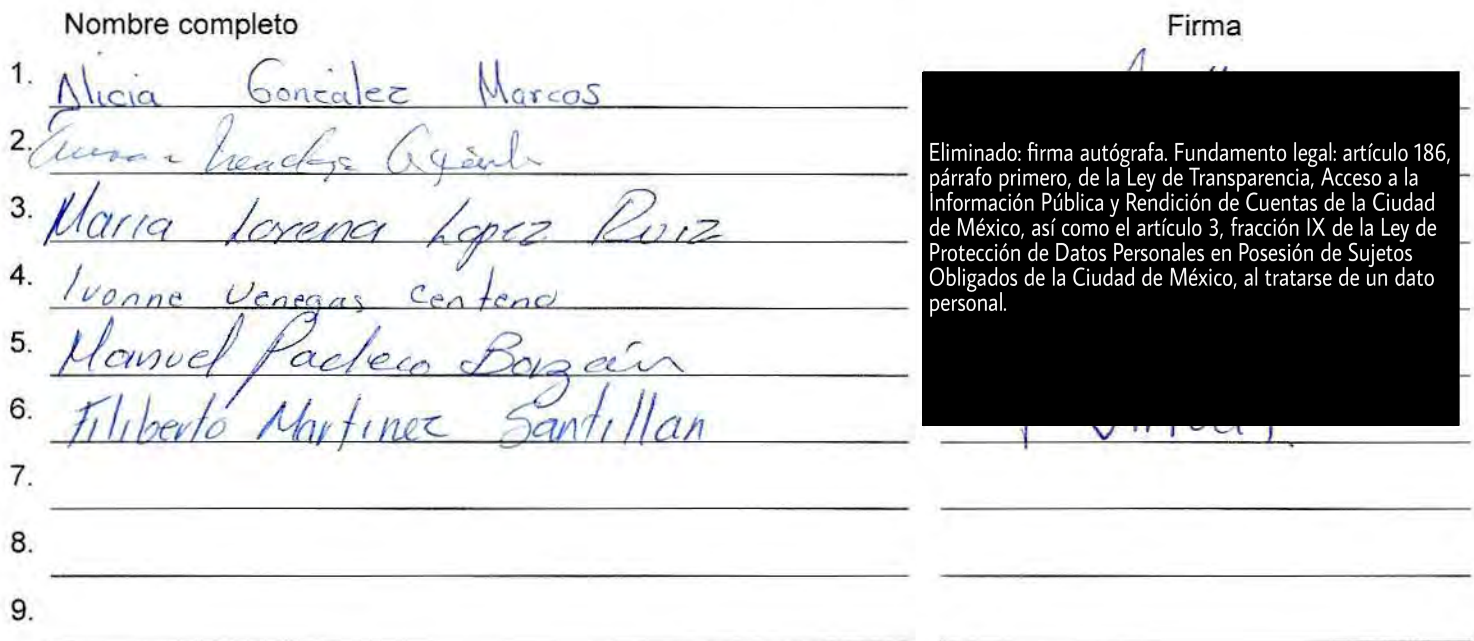 Nombre completo
Firma
1. Alicia Gonzalez Marcos
2.
3. Maria Lorena Lopez Ruiz
4. Ivonne Venegas Centeno
5. Manuel Pacheco Bazán
6. Filiberto Martinez Santillan
7.
8.
9.
Eliminado: firma autógrafa. Fundamento legal: artículo 186,
párrafo primero, de la Ley de Transparencia, Acceso a la
Información Pública y Rendición de Cuentas de la Ciudad
de México, así como el artículo 3, fracción IX de la Ley de
Protección de Datos Personales en Posesión de Sujetos
Obligados de la Ciudad de México, al tratarse de un dato
personal.